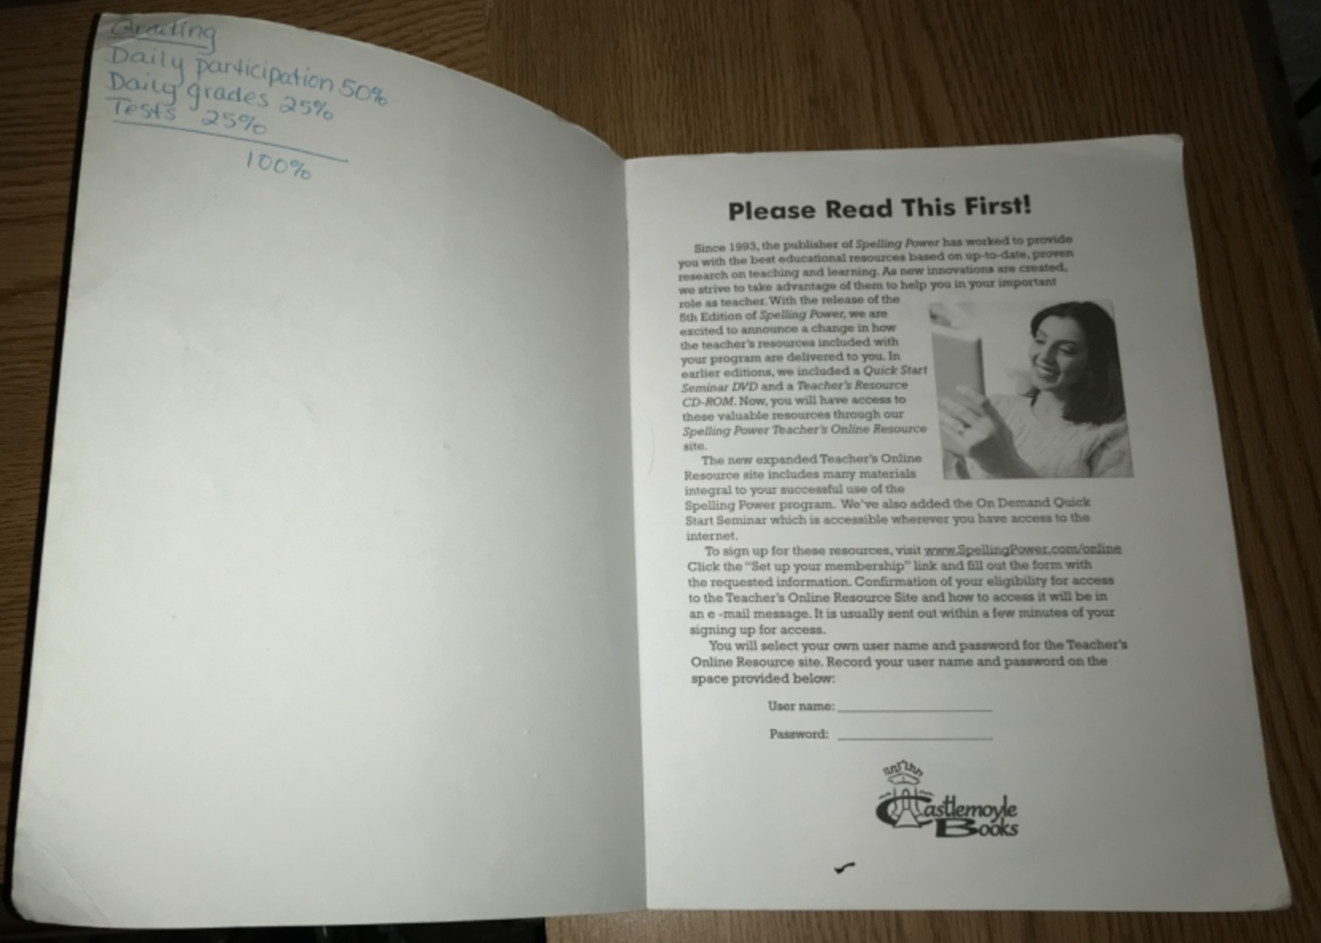 Grading
Daily participation 50%
Daily grades 25%
Tests 25%
100%
Please Read This First!
Since 1993, the publisher of Spelling Power has worked to provide
you with the best educational resources based on up-to-date, proven
research on teaching and learning. As new innovations are created,
we strive to take advantage of them to help you in your important
role as teacher. With the release of the
5th Edition of Spelling Power, we are
excited to announce a change in how
the teacher's resources included with
your program are delivered to you. In
earlier editions, we included a Quick Start
Seminar DVD and a Teacher's Resource
CD-ROM. Now, you will have access to
these valuable resources through our
Spelling Power Teacher's Online Resource
site.
The new expanded Teacher's Online
Resource site includes many materials
integral to your successful use of the
Spelling Power program. We've also added the On Demand Quick
Start Seminar which is accessible wherever you have access to the
internet.
To sign up for these resources, visit www.SpellingPower.com/online
Click the "Set up your membership" link and fill out the form with
the requested information. Confirmation of your eligibility for access
to the Teacher's Online Resource Site and how to access it will be in
an e -mail message. It is usually sent out within a few minutes of your
signing up for access.
You will select your own user name and password for the Teacher's
Online Resource site. Record your user name and password on the
space provided below:
User name:
Password:
Castlemoyle
Books